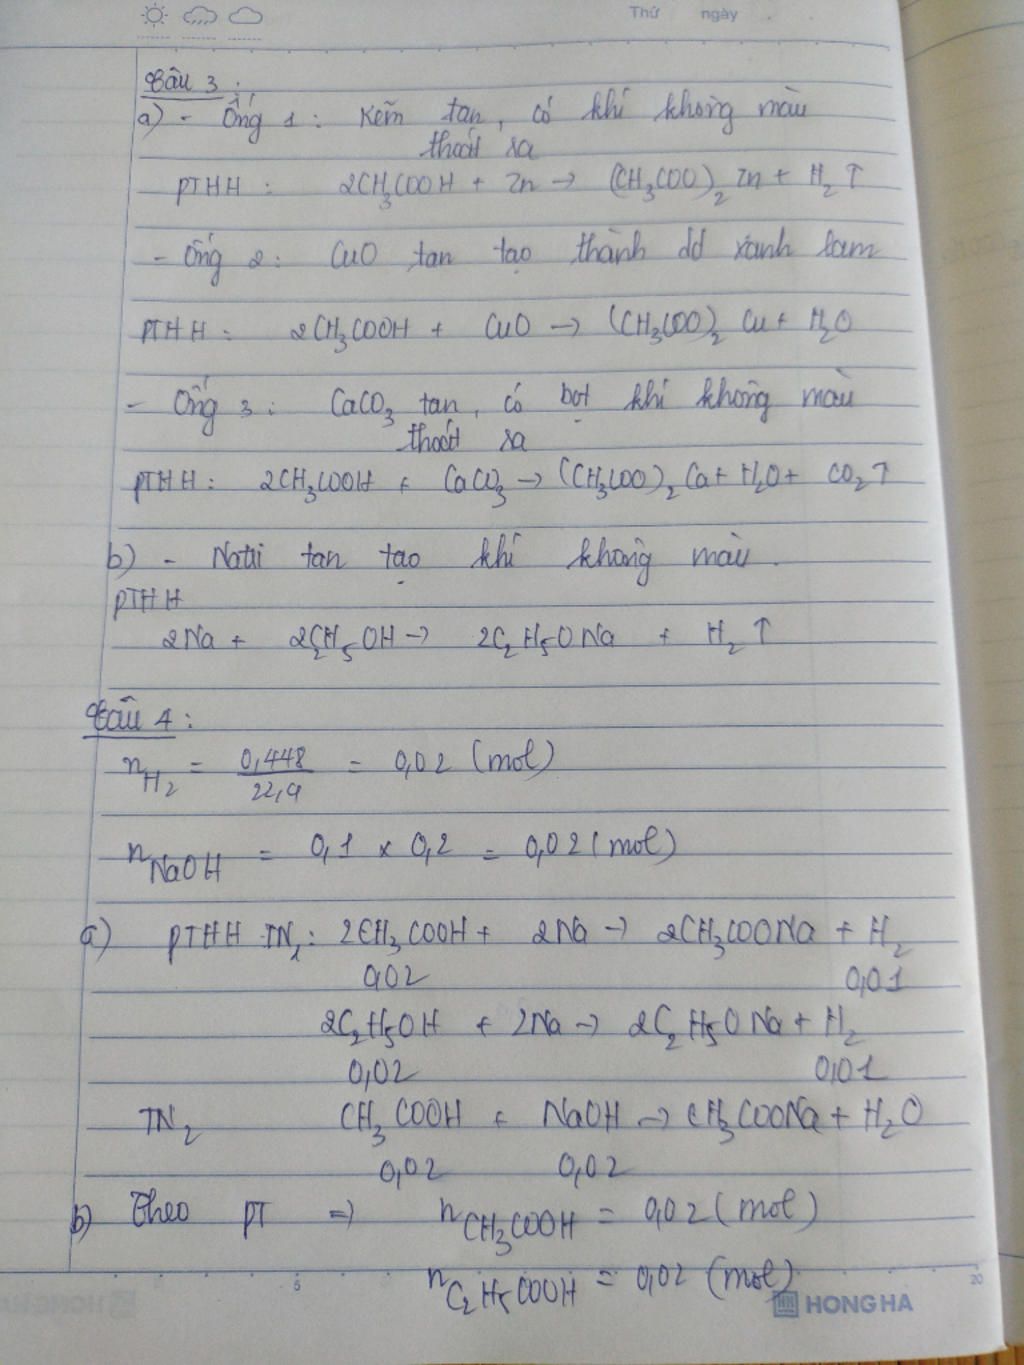 Thứ ngày
Câu 3:
a) - Ống 1: Kẽm tan, có khí không màu
thoát ra
PTHH: 2CH₃COOH + Zn → (CH₃COO)₂ Zn + H₂ ↑
- Ống 2: CuO tan tạo thành dd xanh lam
PTHH: 2CH₃COOH + CuO → (CH₃COO)₂ Cu + H₂O
- Ống 3: CaCO₃ tan, có bọt khí không màu
thoát ra
PTHH: 2CH₃COOH + CaCO₃ → (CH₃COO)₂ Ca + H₂O + CO₂ ↑
b) - Natri tan tạo khí không màu.
PTHH
2Na + 2C₂H₅OH → 2C₂H₅ONa + H₂ ↑
Câu 4:
n H₂ = 0,448 / 22,4 = 0,02 (mol)
n NaOH = 0,1 x 0,2 = 0,02 (mol)
a) PTHH TN₁: 2CH₃COOH + 2Na → 2CH₃COONa + H₂
0,02 0,01
2C₂H₅OH + 2Na → 2C₂H₅ONa + H₂
0,02 0,01
TN₂ CH₃COOH + NaOH → CH₃COONa + H₂O
0,02 0,02
b) Theo PT => n CH₃COOH = 0,02 (mol)
n C₂H₅COOH = 0,02 (mol)
5 20
HONG HA